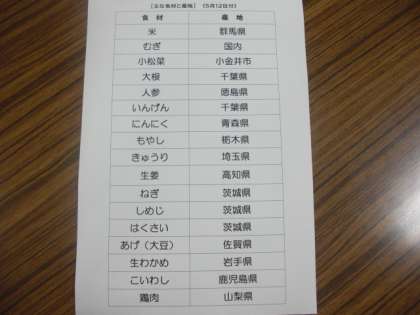 ［主な食材と産地］（5月12日分）
食材 産地
米 群馬県
むぎ 国内
小松菜 小金井市
大根 千葉県
人参 徳島県
いんげん 千葉県
にんにく 青森県
もやし 栃木県
きゅうり 埼玉県
生姜 高知県
ねぎ 茨城県
しめじ 茨城県
はくさい 茨城県
あげ（大豆） 佐賀県
生わかめ 岩手県
こいわし 鹿児島県
鶏肉 山梨県